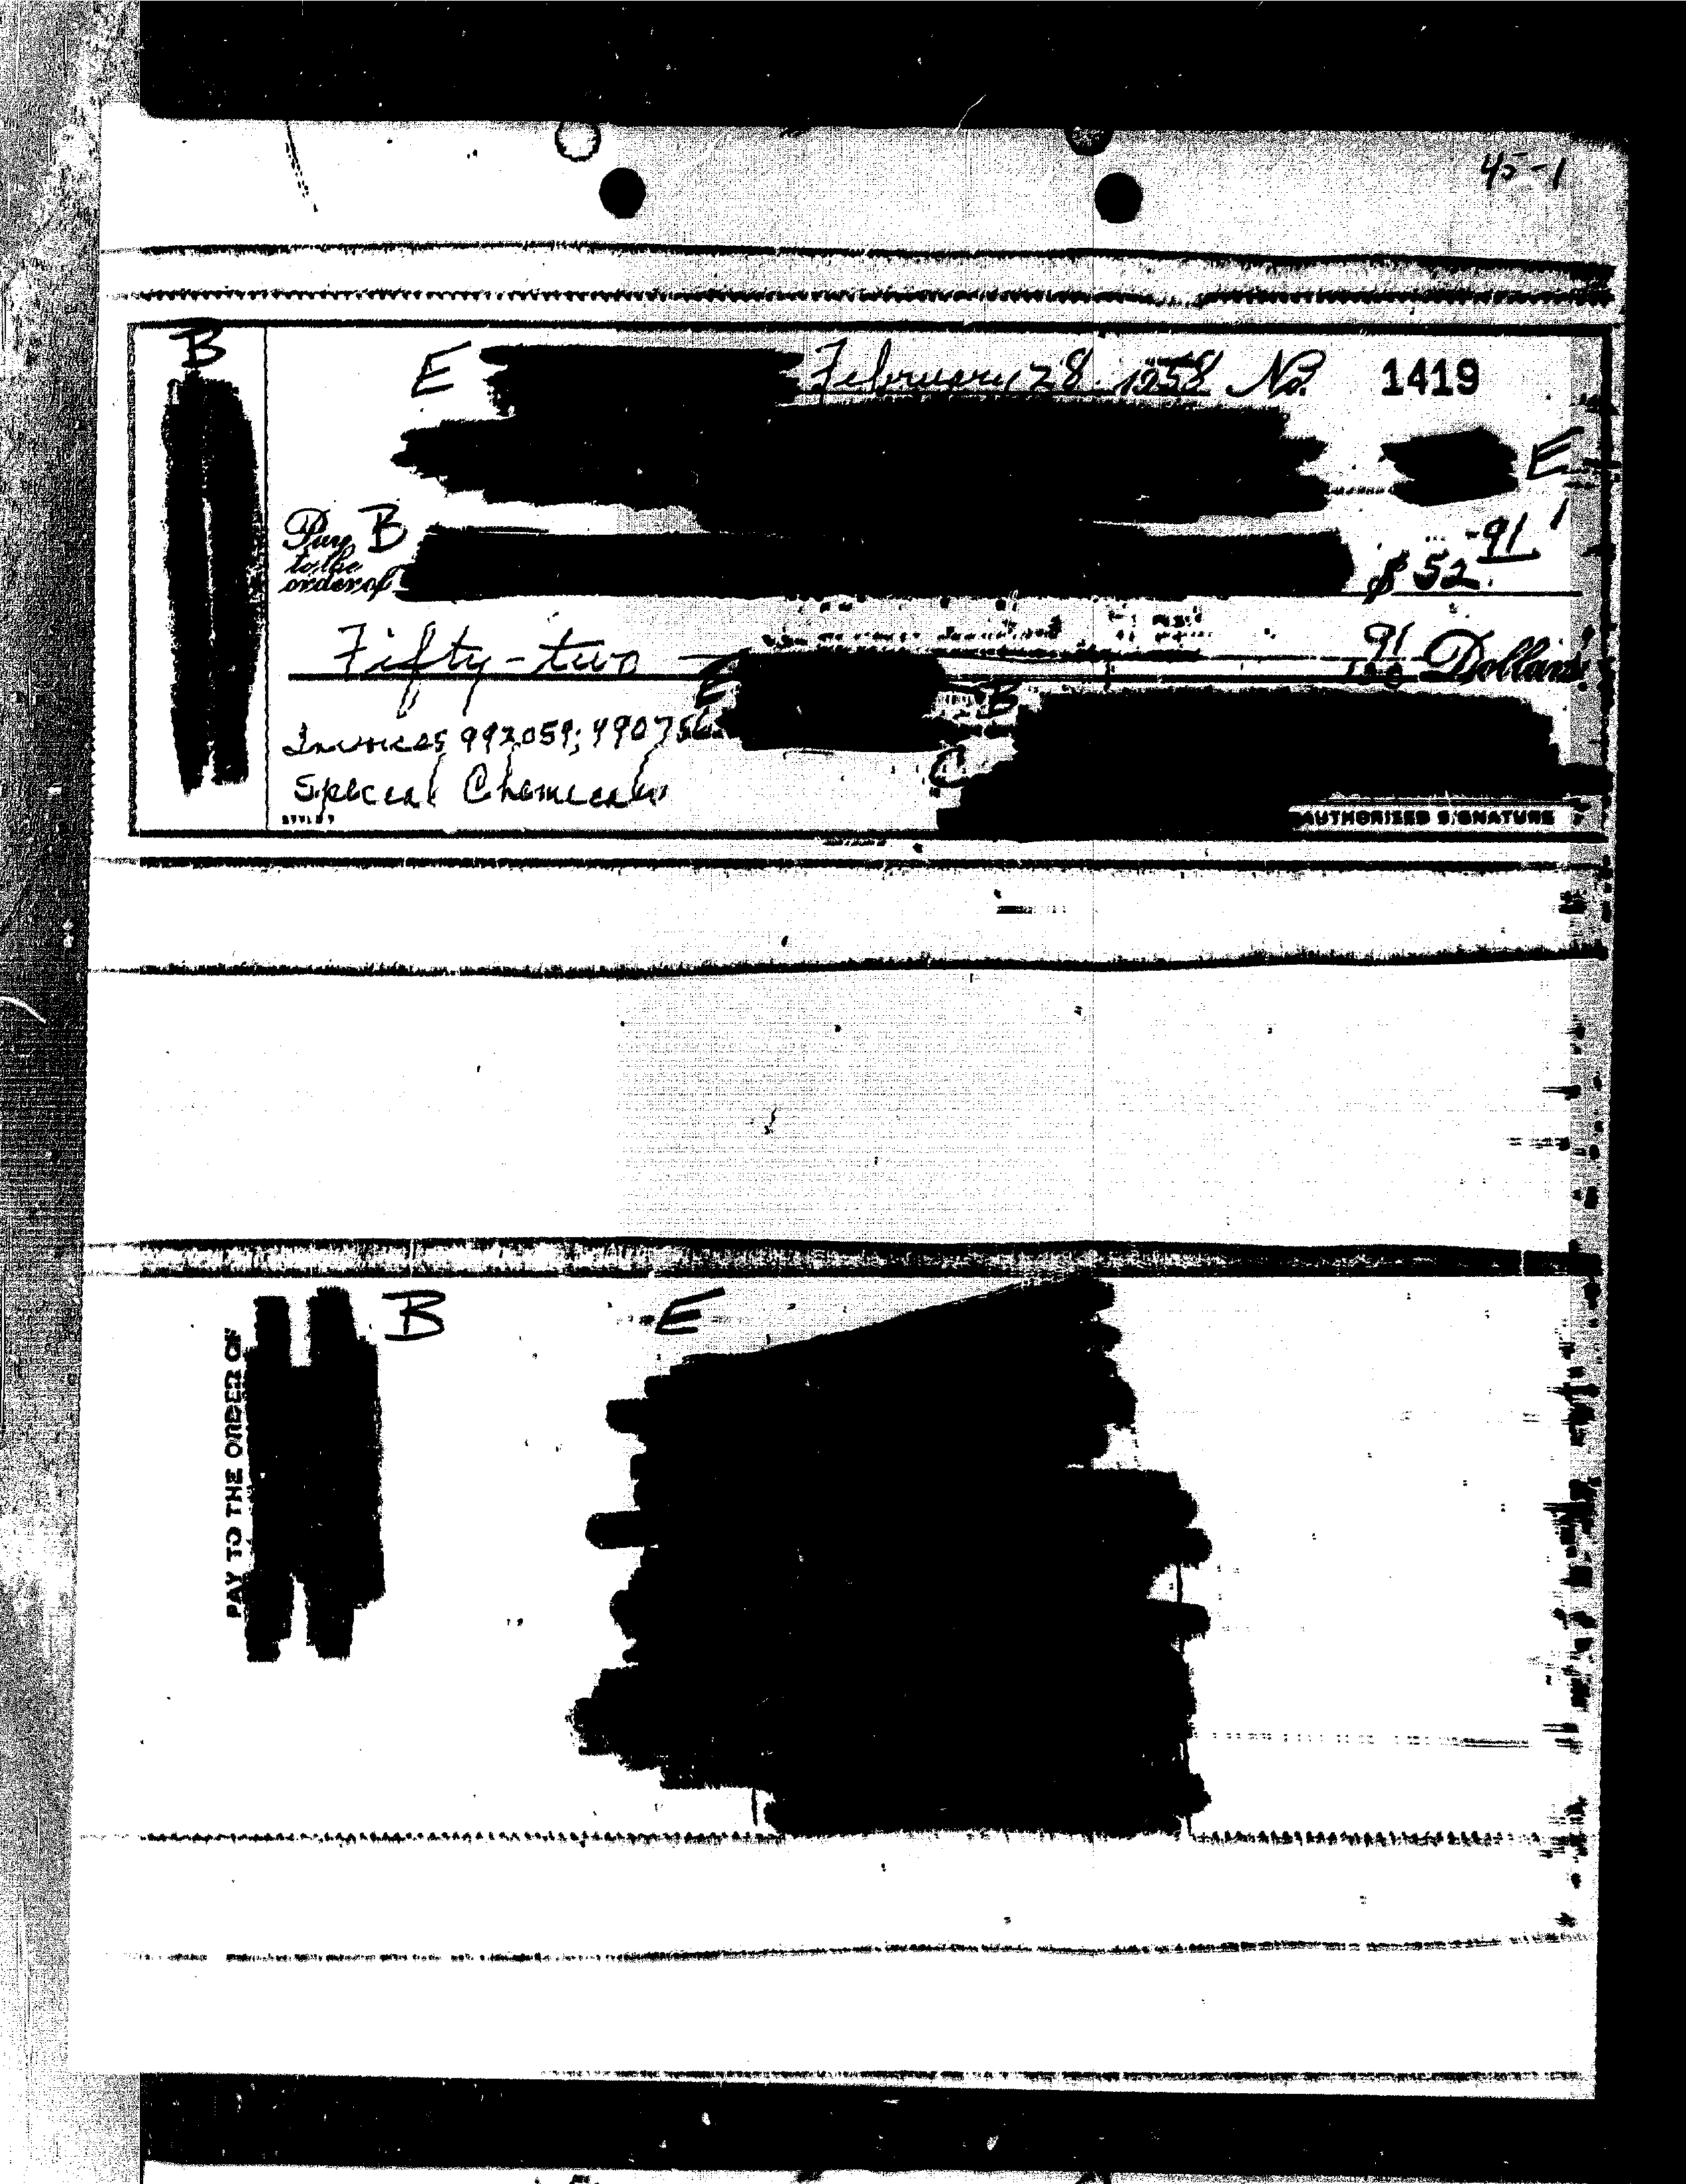 45-1
B
E February 28 1958 No. 1419
E
Pay to the order of B $ 52.91
Fifty-two 91/100 Dollars
E B
Invoices 992059; 490756
C
Special Chemicals
AUTHORIZED SIGNATURE
B E
PAY TO THE ORDER OF